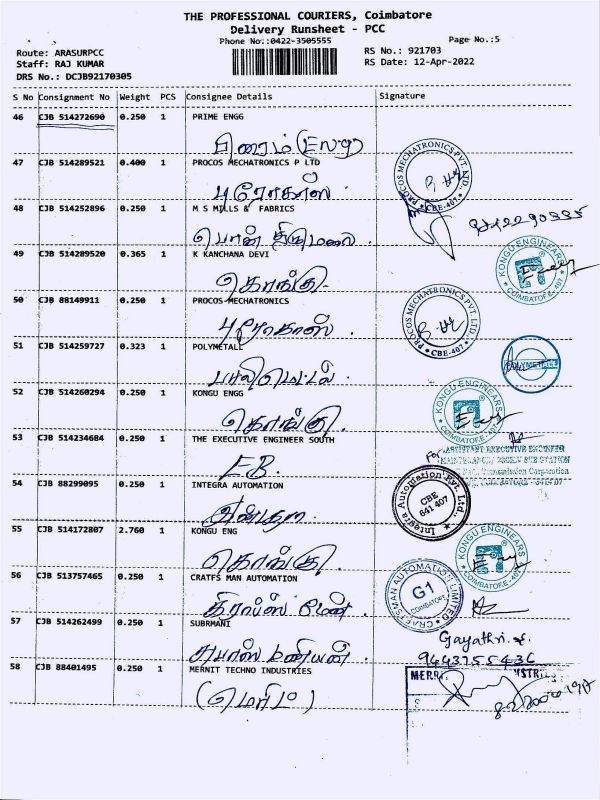 THE PROFESSIONAL COURIERS, Coimbatore
Delivery Runsheet - PCC
Phone No.:0422-3505555
Page No.:5
Route: ARASURPCC
Staff: RAJ KUMAR
DRS No.: DCJB92170305
RS No.: 921703
RS Date: 12-Apr-2022
S No Consignment No Weight PCS Consignee Details Signature
46 CJB 514272690 0.250 1 PRIME ENGG
47 CJB 514289521 0.400 1 PROCOS MECHATRONICS P LTD
PROCOS MECHATRONICS PVT. LTD. CBE-407
48 CJB 514252896 0.250 1 M S MILLS & FABRICS
பொன் திருமலை
49 CJB 514289520 0.365 1 K KANCHANA DEVI
கொங்கு
KONGU ENGINEARS COIMBATORE - 407
50 CJB 88149911 0.250 1 PROCOS MECHATRONICS
PROCOS MECHATRONICS PVT. LTD. CBE-407
51 CJB 514259727 0.323 1 POLYMETALL
பாலிமெட்டல்
POLYMETALL
52 CJB 514260294 0.250 1 KONGU ENGG
கொங்கு
KONGU ENGINEARS COIMBATORE - 407
53 CJB 514234684 0.250 1 THE EXECUTIVE ENGINEER SOUTH
E.B.
For
ASSISTANT EXECUTIVE ENGINEER
Transmission Corporation
54 CJB 88299095 0.250 1 INTEGRA AUTOMATION
Integra Automation Pvt. Ltd. CBE 641 407
55 CJB 514172807 2.760 1 KONGU ENG
கொங்கு
KONGU ENGINEARS COIMBATORE - 407
56 CJB 513757465 0.250 1 CRATFS MAN AUTOMATION
CRAFTSMAN AUTOMATION LIMITED G1 COIMBATORE
57 CJB 514262499 0.250 1 SUBRMANI
சுபரமணியன்
Gayathri
58 CJB 88401495 0.250 1 MERNIT TECHNO INDUSTRIES
(மெரிட்)